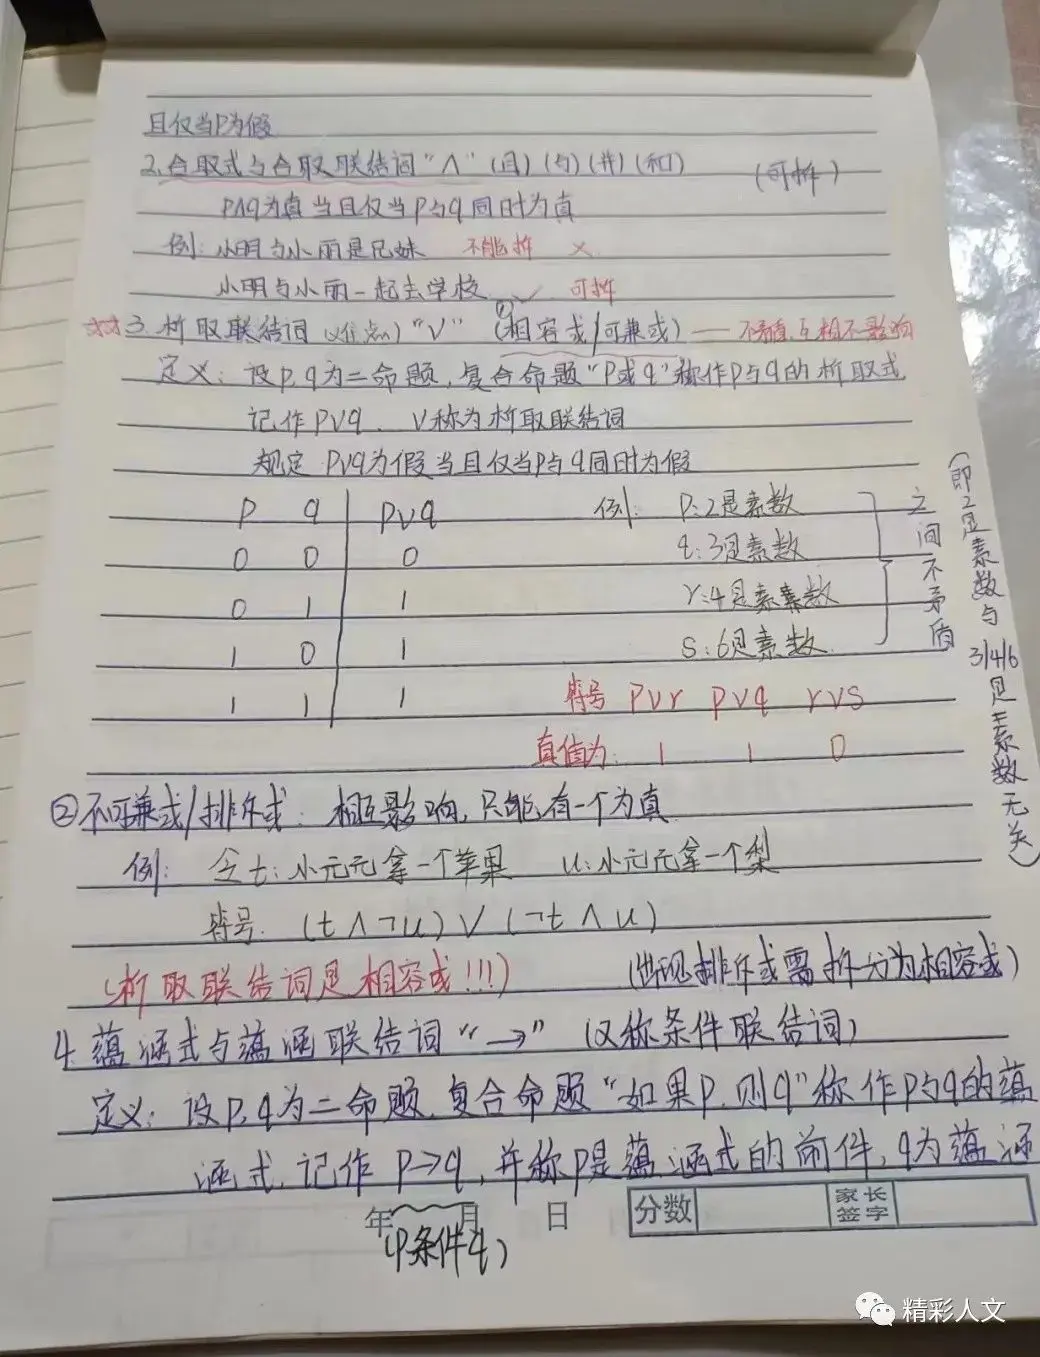 且仅当P为假
2.合取式与合取联结词"∧"(且)(与)(并)(和) (可拆)
P∧q为真当且仅当P与q同时为真
例: 小明与小丽是兄妹 不能拆 ×
小明与小丽一起去学校 ✓ 可拆
☆☆3.析取联结词 "∨" ①(相容或/可兼或) —— 互相不影响
定义: 设P,q为二命题,复合命题"P或q"称作P与q的析取式
记作P∨q. ∨称为析取联结词
规定 P∨q为假当且仅当P与q同时为假
P q P∨q 例: P:2是素数
0 0 0 q:3是素数
0 1 1 r:4是素数
1 0 1 s:6是素数
之间不矛盾
(即2是素数与3/4/6是素数无关)
1 1 1 符号 P∨r P∨q r∨s
真值为: 1 1 0
②不可兼或/排斥或: 相互影响,只能有一个为真
例: 令t:小元元拿一个苹果 u:小元元拿一个梨
符号. (t∧¬u)∨(¬t∧u)
(析取联结词是相容或!!!) (出现排斥或需拆分为相容或)
4.蕴涵式与蕴涵联结词"→" (又称条件联结词)
定义: 设P,q为二命题,复合命题"如果P,则q"称作P与q的蕴
涵式,记作 P→q,并称P是蕴涵式的前件,q为蕴涵
年 月 日 分数 家长签字
(P条件q)
精彩人文